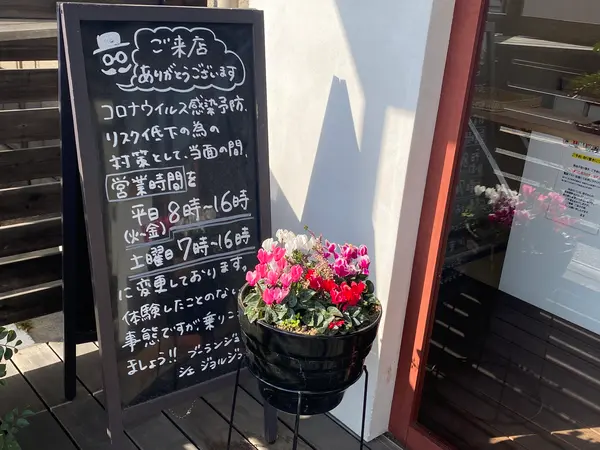 ご来店
ありがとうございます
コロナウイルス感染予防、
リスク低下の為の
対策として、当面の間、
営業時間を
平日 8時〜16時
(火〜金)
土曜日 7時〜16時
に変更しております。
体験したことのない
事態ですが乗りこ
ましょう!! ブーランジェ
シェ ジョルジュ